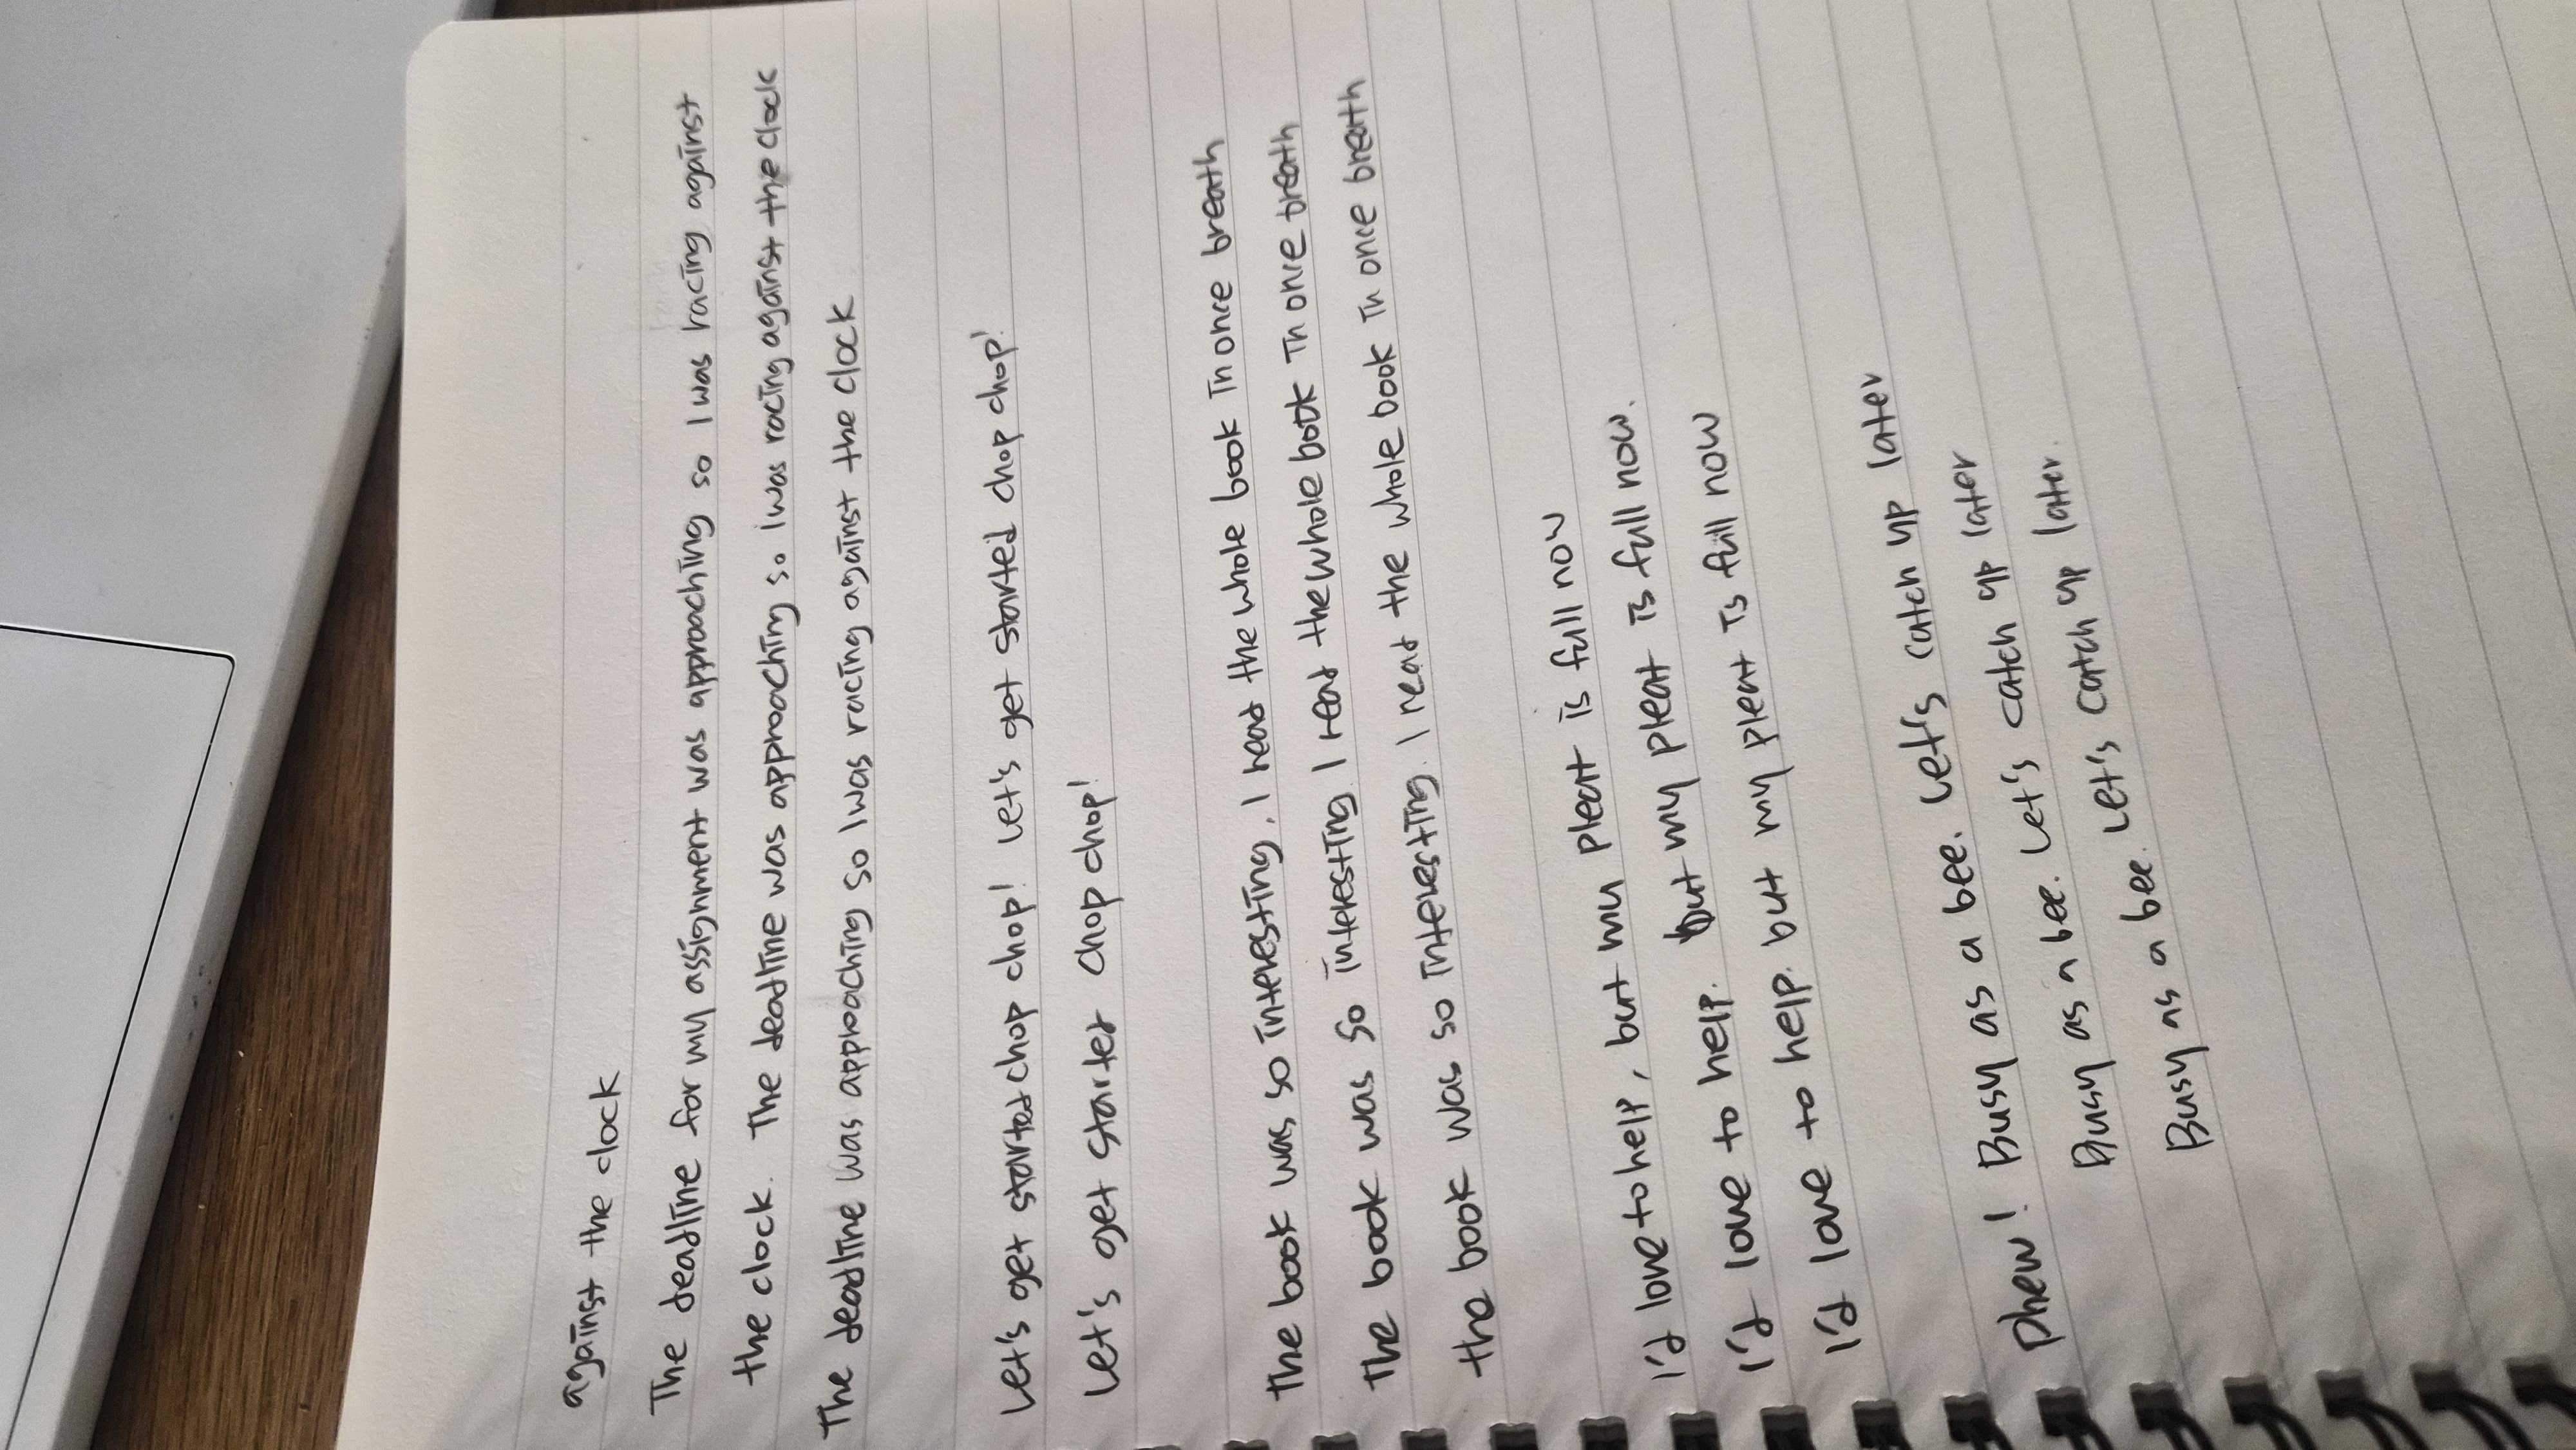 against the clock
The deadline for my assignment was approaching so I was racing against
the clock. The deadline was approaching so I was racing against the clock
The deadline was approaching so I was racing against the clock
Let's get started chop chop! Let's get started chop chop!
Let's get started chop chop!
The book was so interesting. I read the whole book in once breath
The book was so interesting. I read the whole book in once breath
the book was so interesting. I read the whole book in once breath
I'd love to help, but my pleat is full now
I'd love to help. but my pleat is full now.
I'd love to help. but my pleat is full now
Phew! Busy as a bee. Let's catch up later
Busy as a bee. Let's catch up later
Busy as a bee. Let's catch up later.